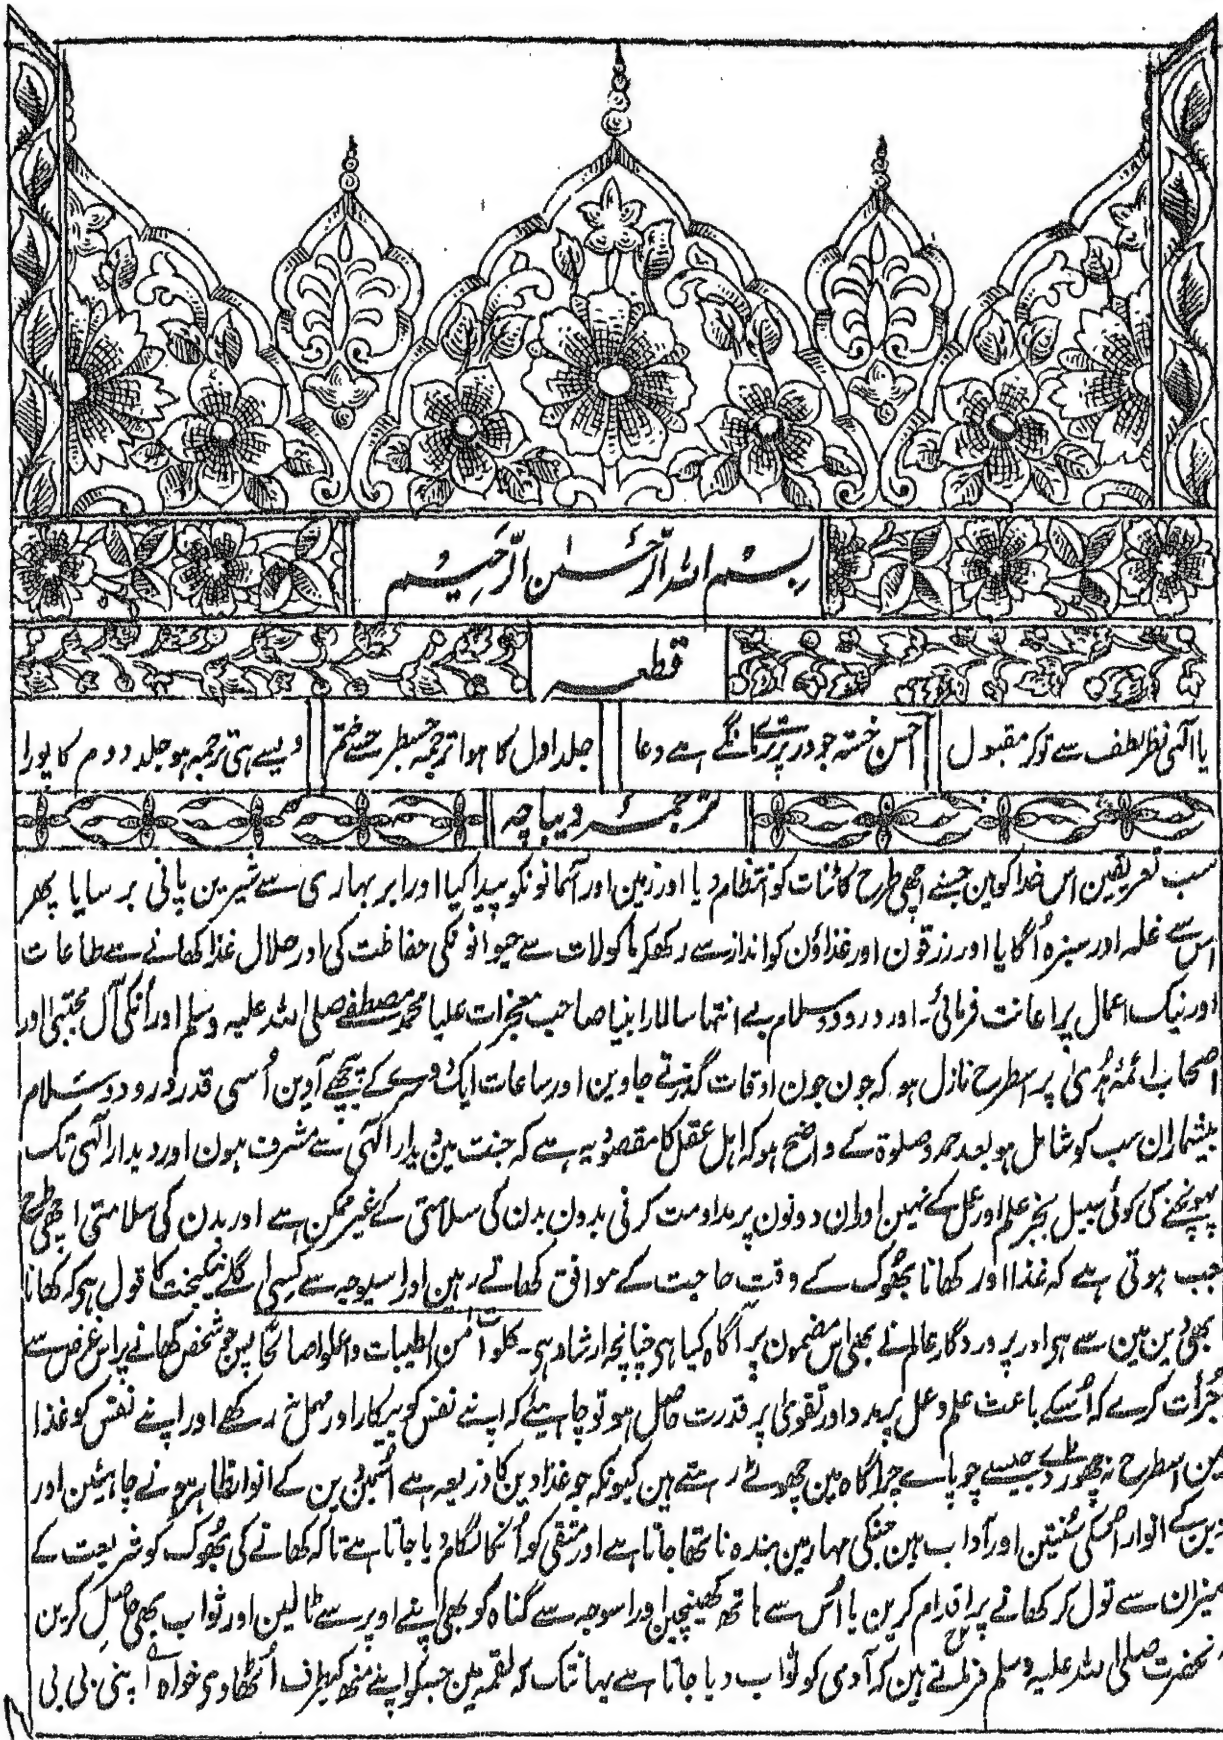 بسم اللہ الرحمٰن الرحیم
قطعہ
یا الٰہی نظر لطف سے تو کر مقبول
احسن خستہ جو در پر ترے مانگے ہے دعا
جلد اول کا ہوا ترجمہ جسطرحسے ختم
ویسے ہی ترجمہ ہو جلد دوم کا پورا
ترجمہ دیباچہ
سب تعریفین اس خدا کو ہین جسنے اچھی طرح کائنات کو انتظام دیا اور زمین اور آسمانونکو پیدا کیا اور ابر بہاری سے شیرین پانی برسایا پھر
اس سے غلہ اور سبزہ اُگایا اور رزقون اور غذاؤن کو اندازسے رکھکر ماکولات سے حیوانونکی حفاظت کی اور حلال غذا کھانے سے طاعات
اور نیک اعمال پر اعانت فرمائی۔ اور درود و سلام بے انتہا سالار انبیا صاحب معجزات علیا محمد مصطفےٰ صلی اللہ علیہ وسلم اور اُنکی آل مجتبیٰ اور
اصحاب ائمۂ ہُدیٰ پر اسطرح نازل ہو کہ جون جون اوقات گذرتے جاوین اور ساعات ایک دوسرے کے پیچھے آوین اُسی قدر درود و سلام
بیشمار ان سب کو شامل ہو بعد حمد و صلوۃ کے واضح ہو کہ اہل عقل کا مقصود یہ ہے کہ جنت مین دیدار الٰہی سے مشرف ہون اور دیدار الٰہی تک
پہونچنے کی کوئی سبیل بجز علم اور عمل کے نہین اور ان دونون پر مداومت کرنی بدون بدن کی سلامتی کے غیر ممکن ہے اور بدن کی سلامتی اچھی طرح
جب ہوتی ہے کہ غذا اور کھانا بھوک کے وقت حاجت کے موافق کھاتے رہین اور اسیوجہ سے کسی اگلے نیکبخت کا قول ہی کہ کھانا
بھی دین مین سے ہو اور پروردگار عالم نے بھی اس مضمون پر آگاہ کیا ہی چنانچہ ارشاد ہی۔ کلوا من الطیبات واعملوا صالحا پس جو شخص کھانے پر اس غرض سے
جُرأت کرے کہ اُسکے باعث علم و عمل پر مدد اور تقویٰ پر قدرت حاصل ہو تو چاہیئے کہ اپنے نفس کو بیکار اور مہمل نہ رکھے اور اپنے نفس کو غذا
مین اسطرح نہ چھوڑ دے جیسے چوپائے چراگاہ مین چھوٹے رہتے ہین کیونکہ جو غذا دین کا ذریعہ ہے اُسمین دین کے انوار ظاہر ہونے چاہئین اور
دین کے انوار اُسکی سُنتین اور آداب ہین جنکی مہار مین بندہ ناتھا جاتا ہے اور متقی کو اُنکا لگام دیا جاتا ہے تاکہ کھانے کی بھوک کو شریعت کے
میزان سے تول کر کھانے پر اقدام کرین یا اُس سے ہاتھ کھینچین اور اسوجہ سے گناہ کو بھی اپنے اوپر سے ٹالین اور ثواب بھی حاصل کرین
آنحضرت صلی اللہ علیہ وسلم فرماتے ہین کہ آدمی کو ثواب دیا جاتا ہے یہانتک کہ لقمہ مین جسکو اپنے منھ کیطرف اُٹھاوی خواہ اپنی بی بی